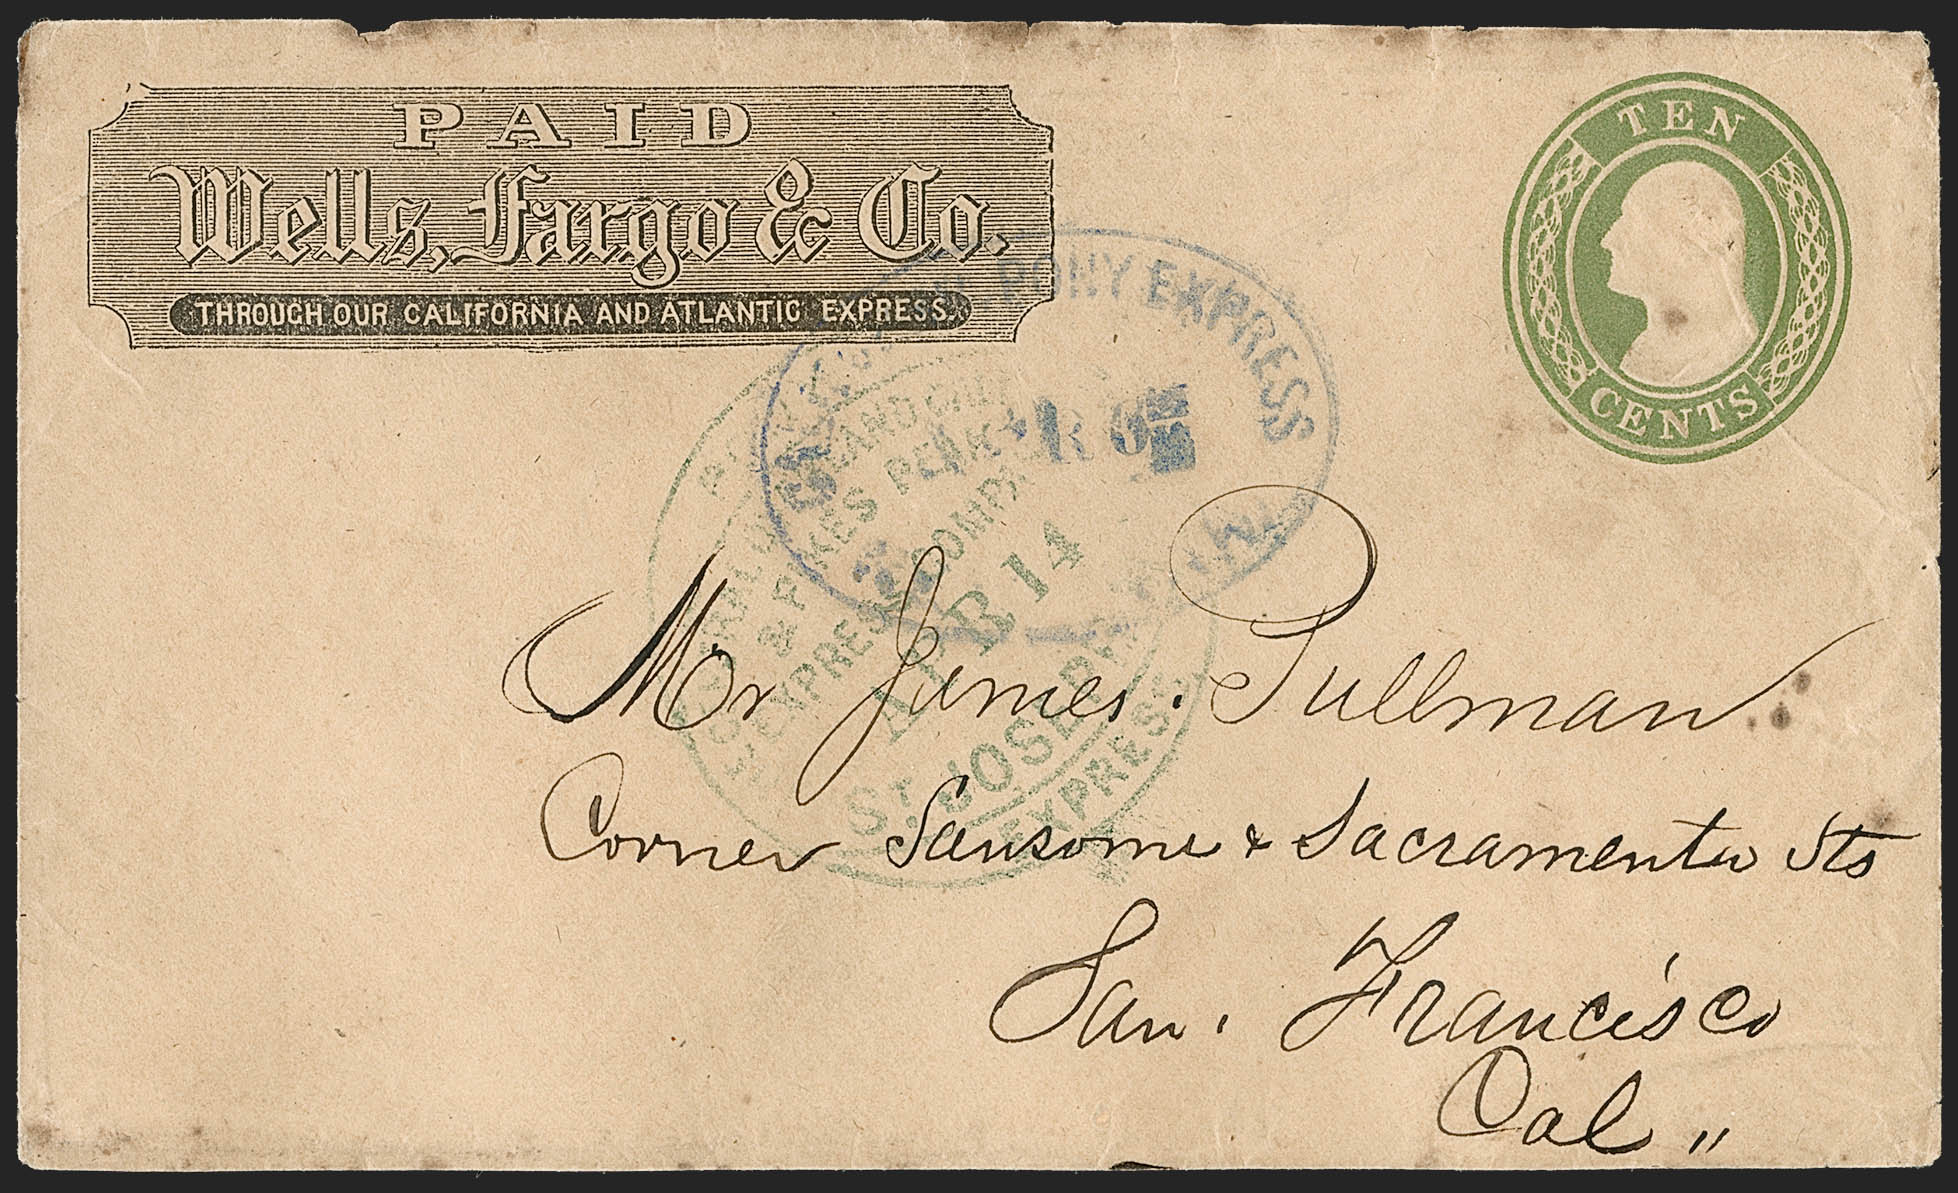 PAID
Wells, Fargo & Co.
THROUGH OUR CALIFORNIA AND ATLANTIC EXPRESS.
TEN
CENTS
PONY EXPRESS
& PIKES PEAK
EXPRESS COMPANY
APR 14
ST JOSEPH
EXPRESS
Mr James. Pullman
Corner Sansome & Sacramento Sts
San. Francisco
Cal "